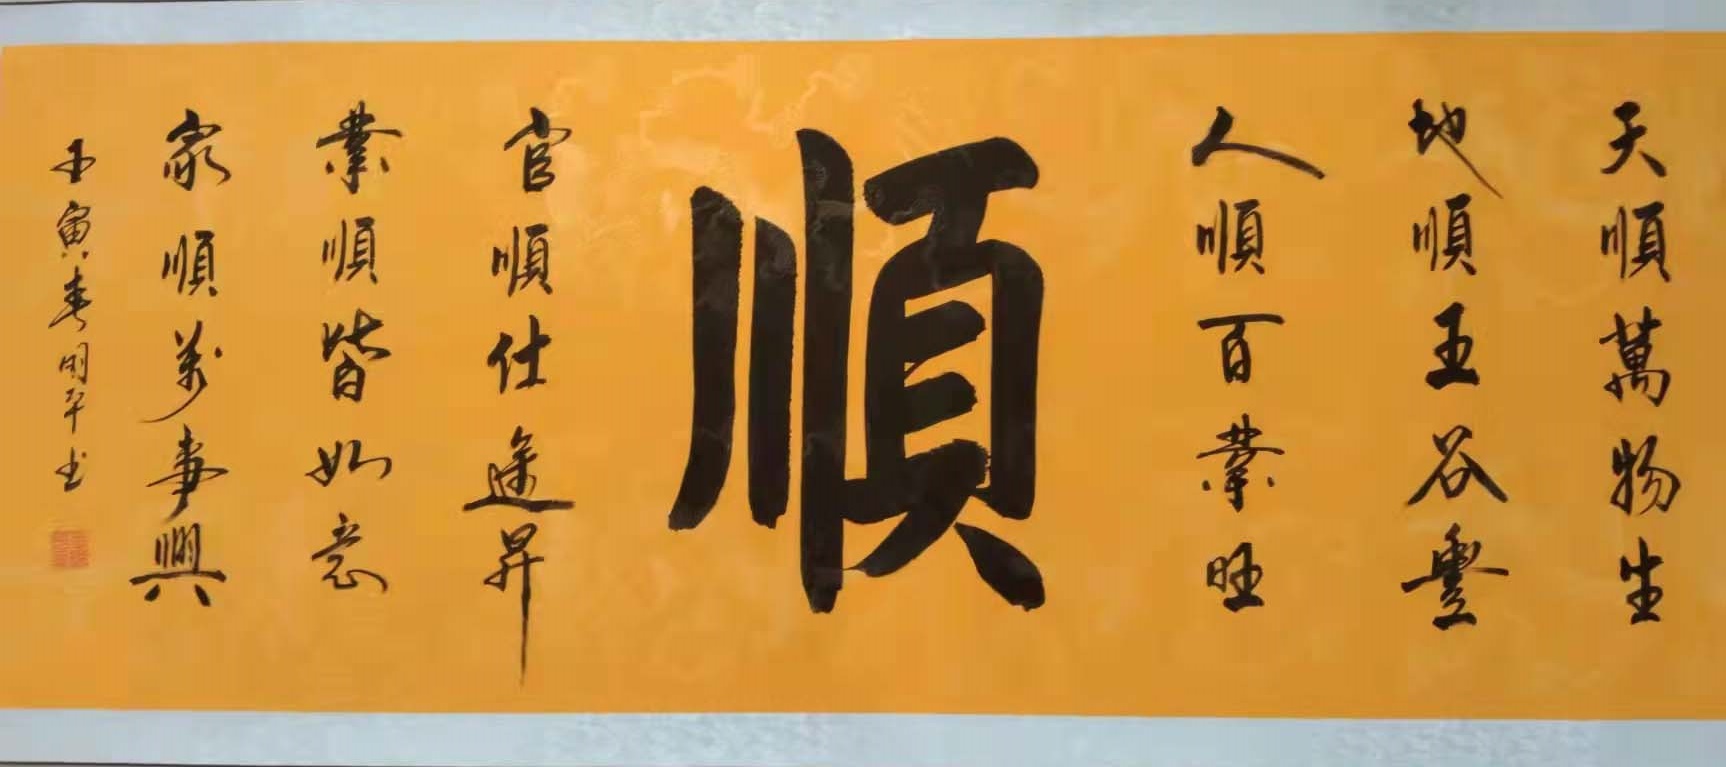 天順萬物生
地順五谷豐
人順百業旺
順
官順仕途昇
業順皆如意
家順萬事興
壬寅春明平书